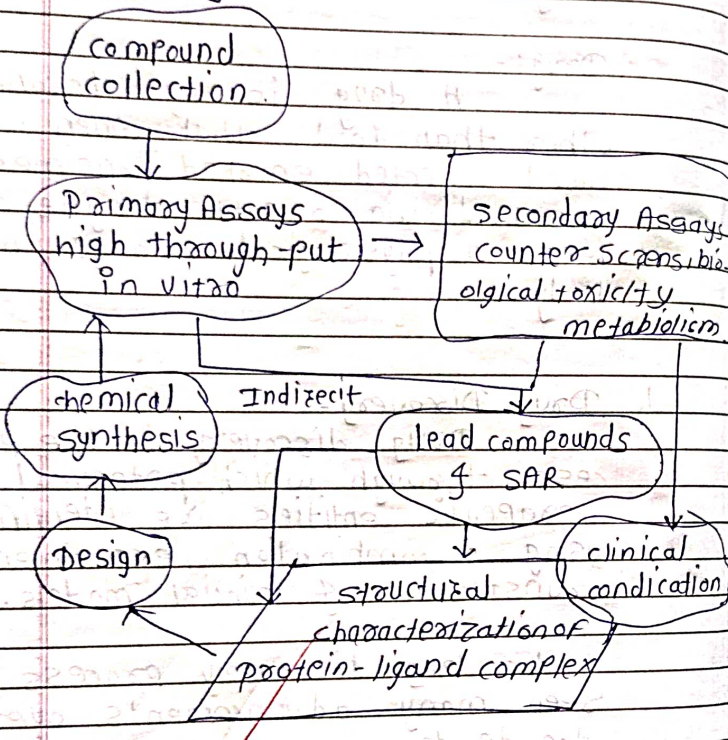 compound
collection.
Primary Assays
high through-put
in vitro
Secondary Assays
counter Screns, bio-
olgical toxicity
metabiolism
Indirecit
chemical
synthesis
lead compounds
& SAR
Design
clinical
candication
structural
characterization of
protein-ligand complex